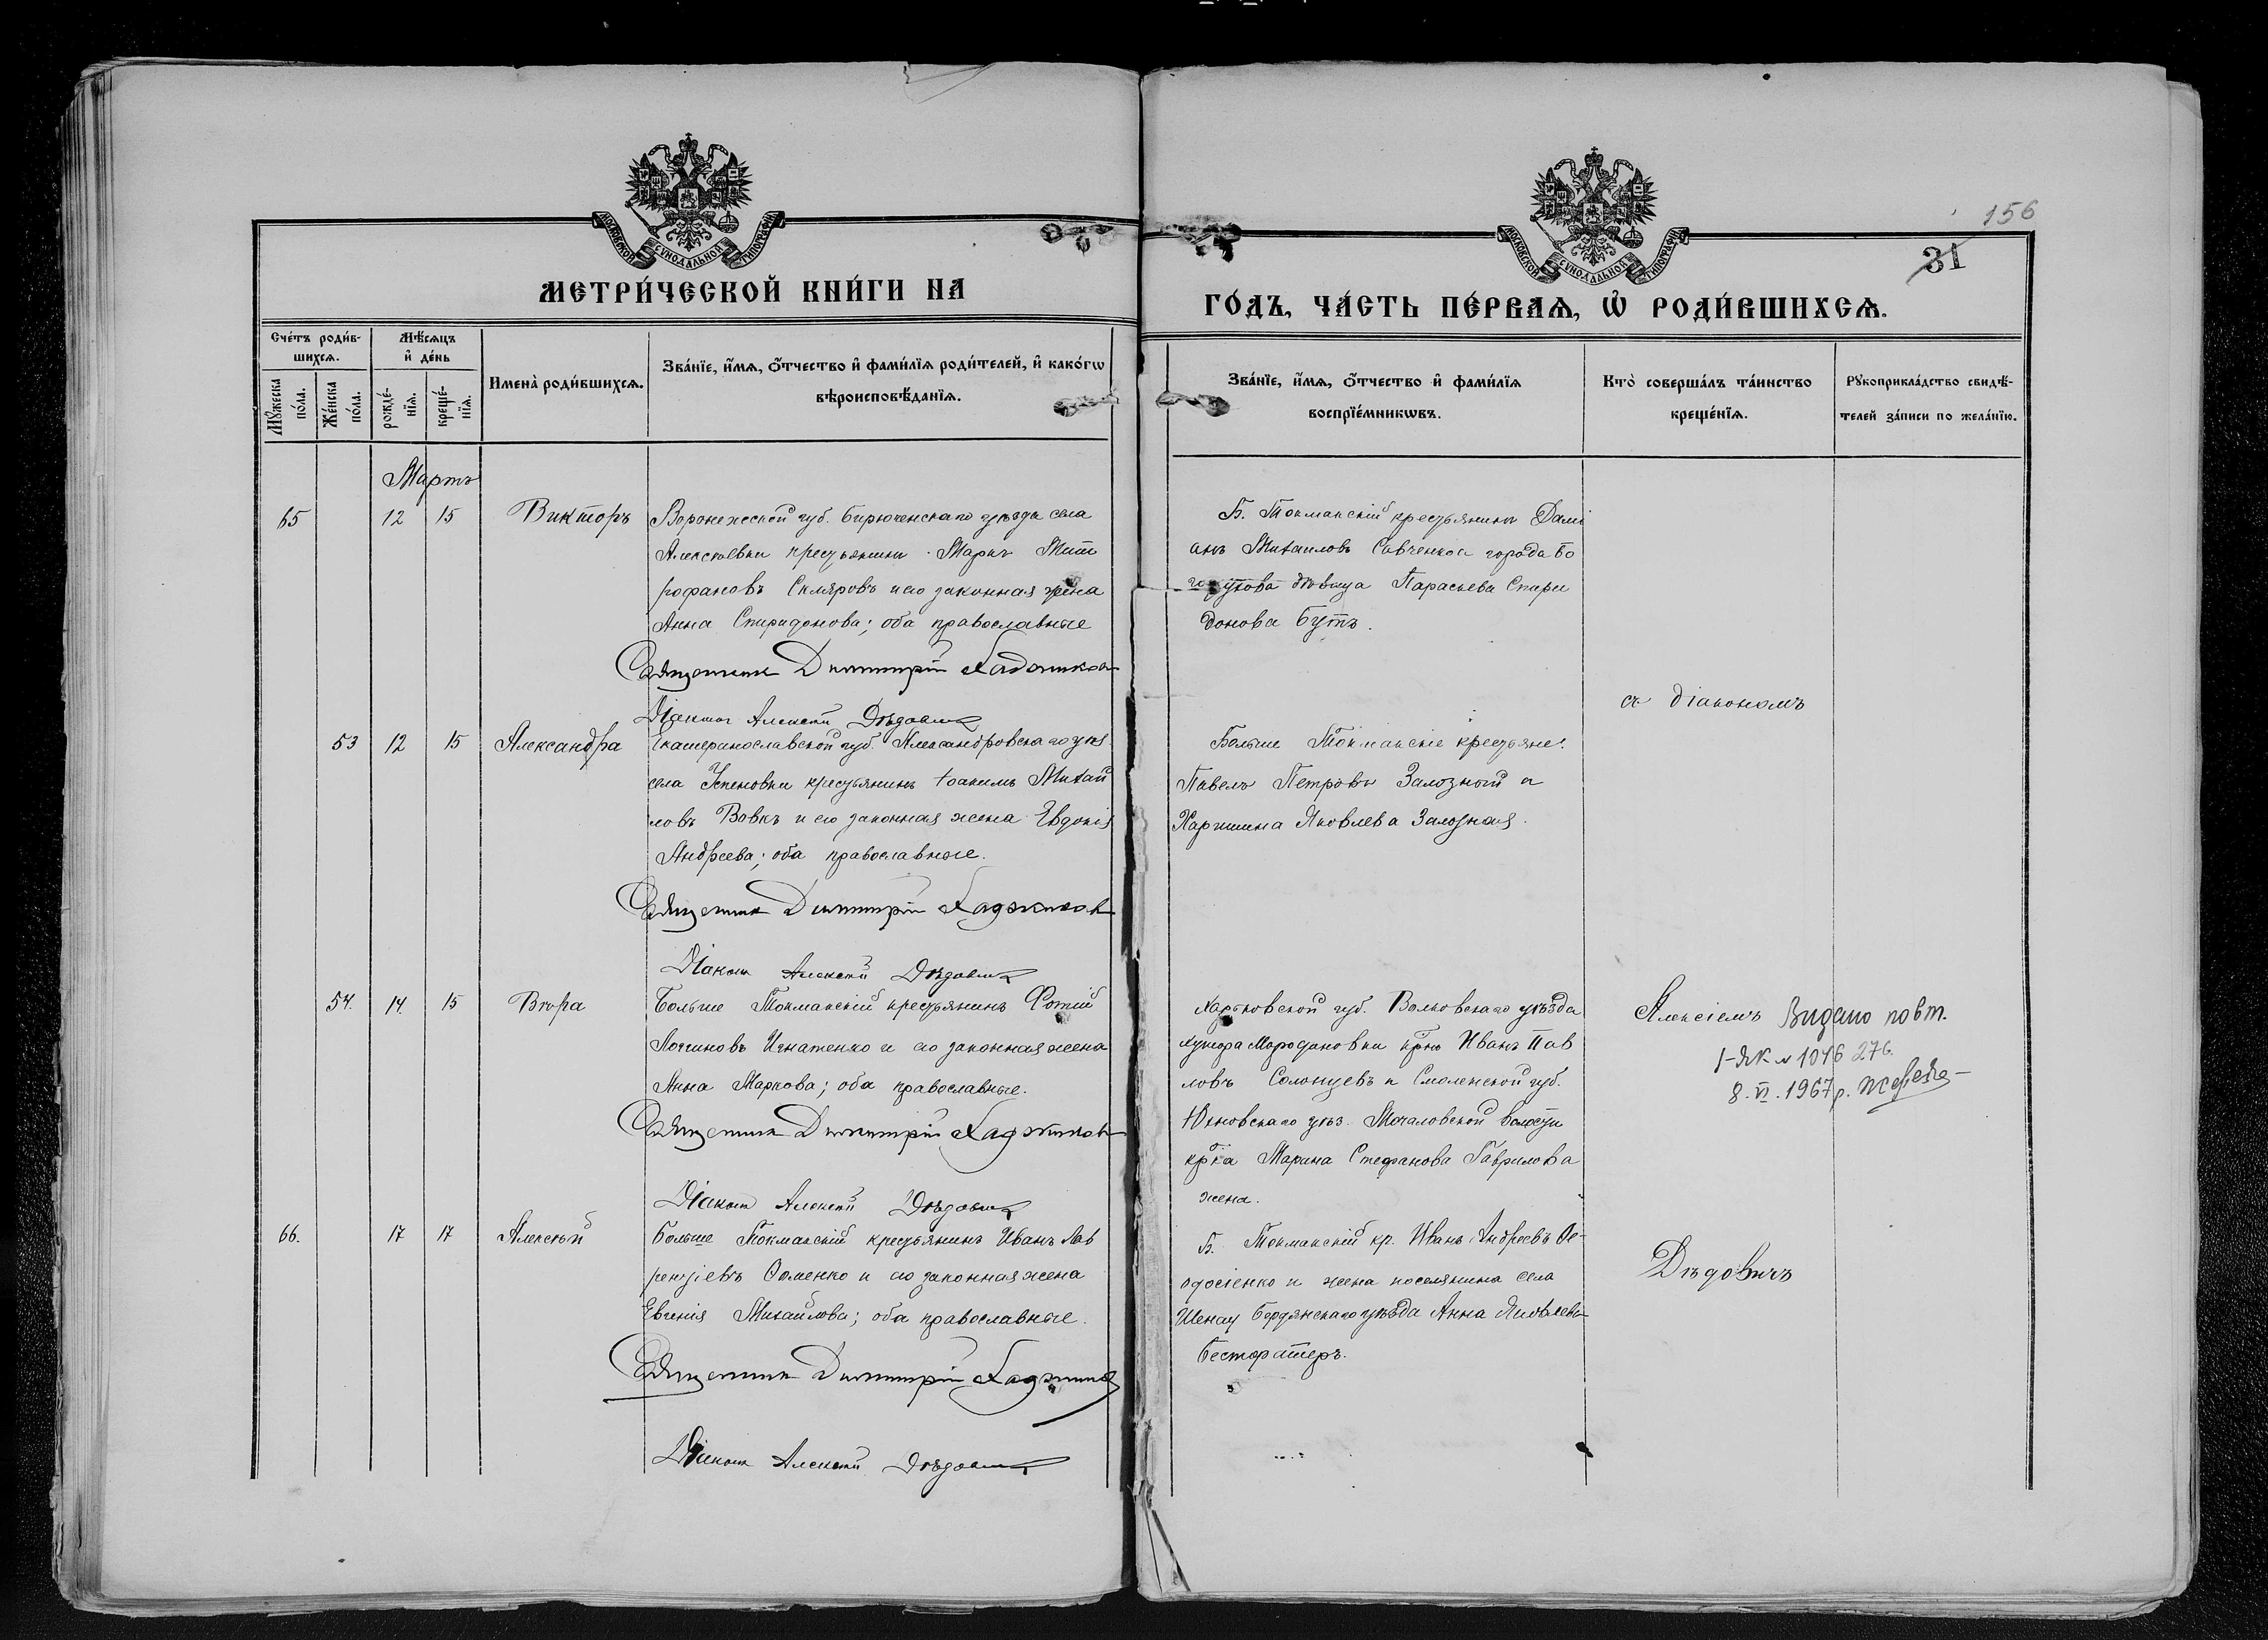 156
31
МОСКОВСКОЙ СѴНОДАЛЬНОЙ ТИПОГРАФІИ
МОСКОВСКОЙ СѴНОДАЛЬНОЙ ТИПОГРАФІИ
МЕТРИ́ЧЕСКОЙ КНИ́ГИ НА
ГО́ДЪ, ЧА́СТЬ ПЕ́РВАѦ, Ѡ҆ РОДИ́ВШИХСѦ.
Сче́тъ роди́в-
шихсѧ.
Мꙋ́жеска
по́ла.
Же́нска
по́ла.
Мѣ́сѧцъ
и҆ де́нь
рожде́-
нїѧ.
креще́-
нїѧ.
Имена̀ роди́вшихсѧ.
Зва́нїе, и҆́мѧ, ѻ҆́тчество и҆ фами́лїѧ роди́телей, и҆ како́гѡ
вѣроисповѣ́данїѧ.
Зва́нїе, и҆́мѧ, ѻ҆́тчество и҆ фами́лїѧ
воспрїе́мникѡвъ.
Кто̀ соверша́лъ та́инство
креще́нїѧ.
Рꙋкоприкла́дство свидѣ́-
телей за́писи по жела́нїю.
Мартъ
65 12 15 Викторъ
Воронежской губ. Бирюченскаго уѣзда села
Алексѣевки крестьянинъ Маркъ Мит
рофановъ Скляровъ и его законная жена
Анна Спиридонова; оба православные
Священникъ Димитрій Хаджиновъ
Діаконъ Алексѣй Дѣдовичъ
Б. Токмакскій крестьянинъ Дамі
анъ Михаиловъ Савченко и города Бо
годухова дѣвица Параскева Спири
донова Бутъ.
съ діакономъ
53 12 15 Александра
Екатеринославской губ. Александровскаго уѣз.
села Успеновки крестьянинъ Іоакимъ Михай
ловъ Вовкъ и его законная жена Евдокія
Андреева; оба православные.
Священникъ Димитрій Хаджиновъ
Діаконъ Алексѣй Дѣдовичъ
Больше Токмакскіе крестьяне:
Павелъ Петровъ Залозный и
Харитина Яковлева Залозная.
54. 14. 15 Вѣра
Больше Токмакскій крестьянинъ Фотій
Логгиновъ Игнатенко и его законная жена
Анна Маркова; оба православные.
Священникъ Димитрій Хаджиновъ
Діаконъ Алексѣй Дѣдовичъ
Харьковской губ. Волковскаго уѣзда
хутора Мародановки крнъ Иванъ Пав
ловъ Солонцевъ и Смоленской губ.
Юхновскаго уѣз. Мочаловской волости
крка Марина Стефанова Гаврилова
жена.
Алексіемъ
Видано повт.
І-ЯК № 1046 276
8.VI.1967р.
66. 17 17 Алексѣй
Больше Токмакскій крестьянинъ Иванъ Лав
рентіевъ Фоменко и его законная жена
Евгенія Михайлова; оба православные.
Священникъ Димитрій Хаджиновъ
Діаконъ Алексѣй Дѣдовичъ
Б. Токмакскій кр. Иванъ Андреевъ Ѳе-
одосіенко и жена поселянина села
Шенау Бердянскаго уѣзда Анна Яковлева
Бестфатеръ.
Дѣдовичъ